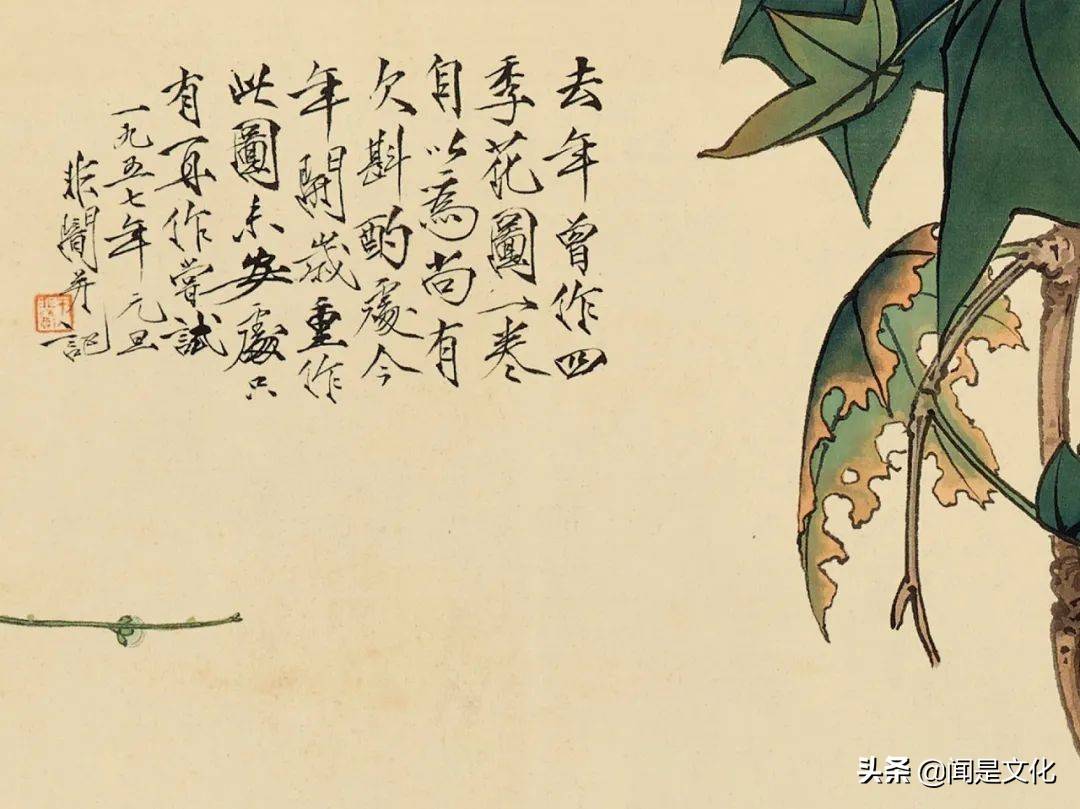 去年曾作四
季花圖一卷
自以為尚有
欠斟酌處今
年開歲重作
此圖未安處只
有再作嘗試
一九五七年元旦
非闇并記
头条 @闻是文化